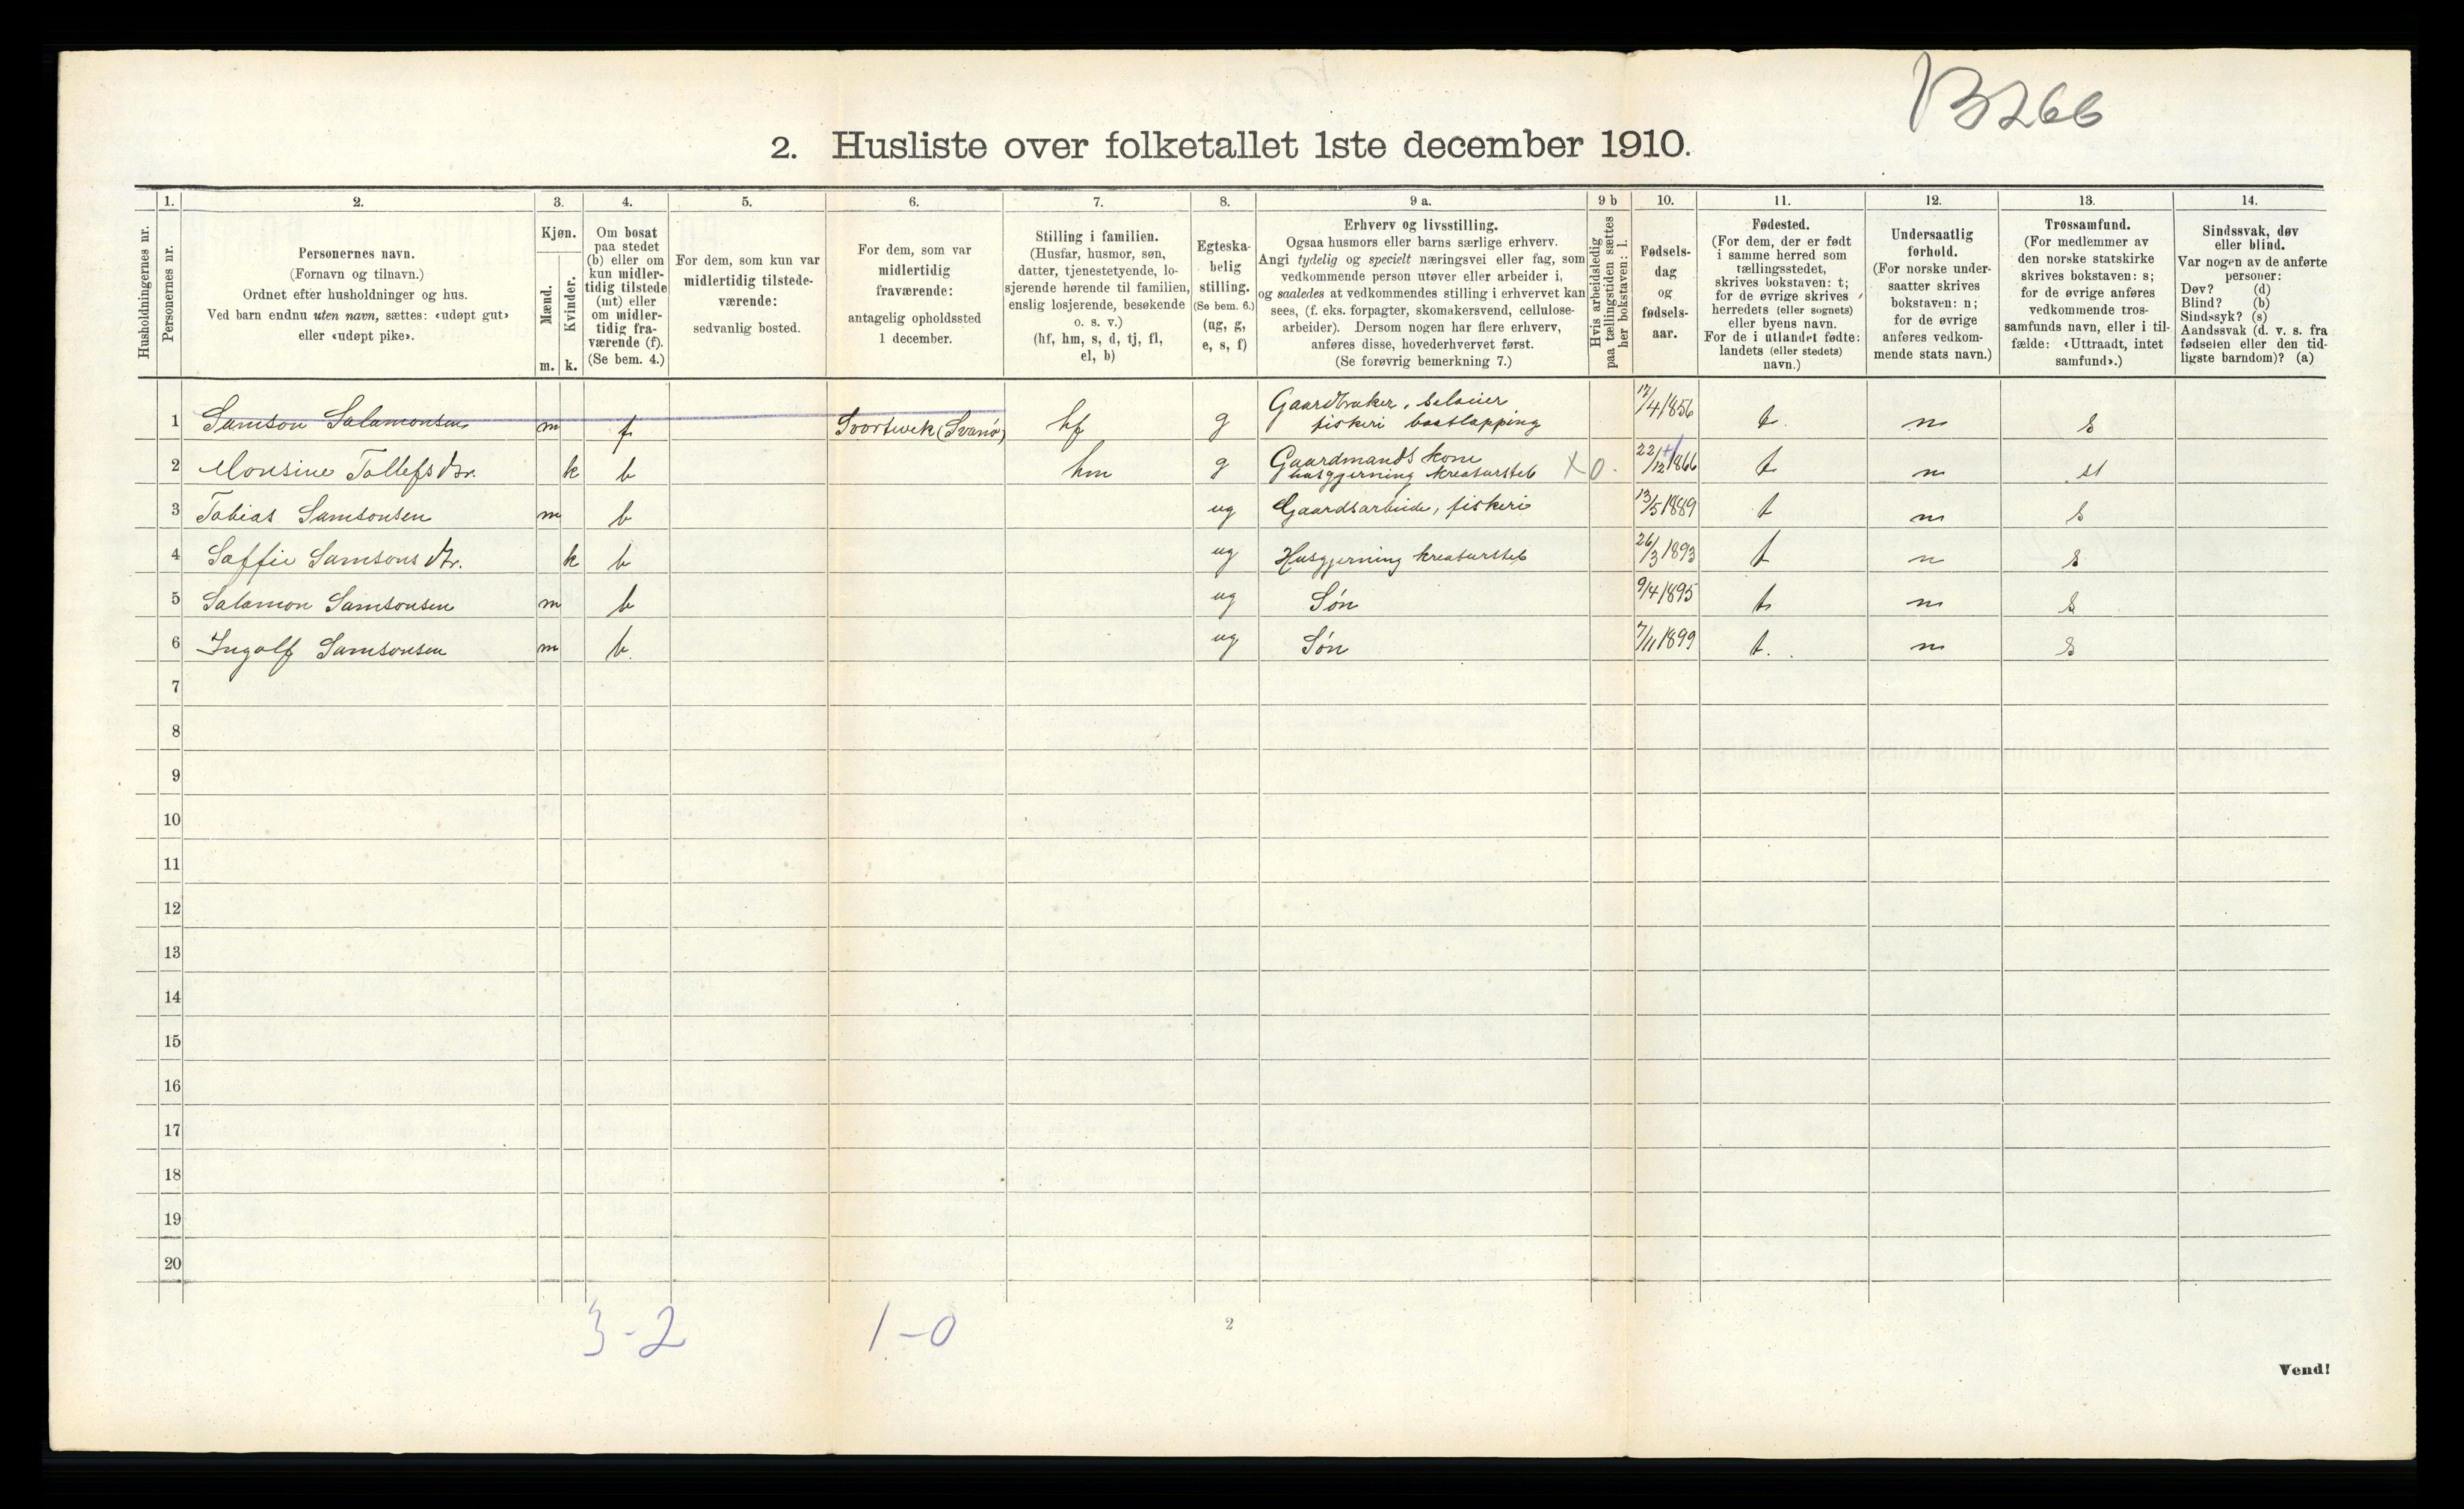 B266
2. Husliste over folketallet 1ste december 1910.
Husholdningernes nr.
1.
Personernes nr.
2.
Personernes navn.
(Fornavn og tilnavn.)
Ordnet efter husholdninger og hus.
Ved barn endnu uten navn, sættes: «udøpt gut»
eller «udøpt pike».
3.
Kjøn.
Mænd.
Kvinder.
m. k.
4.
Om bosat
paa stedet
(b) eller om
kun midler-
tidig tilstede
(mt) eller
om midler-
tidig fra-
værende (f).
(Se bem. 4.)
5.
For dem, som kun var
midlertidig tilstede-
værende:
sedvanlig bosted.
6.
For dem, som var
midlertidig
fraværende:
antagelig opholdssted
1 december.
7.
Stilling i familien.
(Husfar, husmor, søn,
datter, tjenestetyende, lo-
sjerende hørende til familien,
enslig losjerende, besøkende
o. s. v.)
(hf, hm, s, d, tj, fl,
el, b)
8.
Egteska-
belig
stilling.
(Se bem. 6.)
(ug, g,
e, s, f)
9 a.
Erhverv og livsstilling.
Ogsaa husmors eller barns særlige erhverv.
Angi tydelig og specielt næringsvei eller fag, som
vedkommende person utøver eller arbeider i,
og saaledes at vedkommendes stilling i erhvervet kan
sees, (f. eks. forpagter, skomakersvend, cellulose-
arbeider). Dersom nogen har flere erhverv,
anføres disse, hovederhvervet først.
(Se forøvrig bemerkning 7.)
9 b
Hvis arbeidsledig
paa tællingstiden sættes
her bokstaven: l.
10.
Fødsels-
dag
og
fødsels-
aar.
11.
Fødested.
(For dem, der er født
i samme herred som
tællingsstedet,
skrives bokstaven: t;
for de øvrige skrives
herredets (eller sognets)
eller byens navn.
For de i utlandet fødte:
landets (eller stedets)
navn.)
12.
Undersaatlig
forhold.
(For norske under-
saatter skrives
bokstaven: n;
for de øvrige
anføres vedkom-
mende stats navn.)
13.
Trossamfund.
(For medlemmer av
den norske statskirke
skrives bokstaven: s;
for de øvrige anføres
vedkommende tros-
samfunds navn, eller i til-
fælde: «Uttraadt, intet
samfund».)
14.
Sindssvak, døv
eller blind.
Var nogen av de anførte
personer:
Døv? (d)
Blind? (b)
Sindssyk? (s)
Aandssvak (d. v. s. fra
fødselen eller den tid-
ligste barndom)? (a)
1 Samson Salamonsen m f Svortevek (Svanø) hf g Gaardbruker, seleier fiskeri baatlapping 17/4 1856 t. n s
2 Monsine Tollefsdtr. k b hm g Gaardmands kone husgjerning kreaturstel X 0. 22/12 1866 t n st
3 Tobias Samsonsen m b ug Gaardsarbeide, fiskeri 13/5 1889 t n s
4 Saffie Samsonsdtr. k b ug Husgjerning kreaturstel 26/3 1893 t n s
5 Salamon Samsonsen m b ug Søn 9/4 1895 t n s
6 Ingolf Samsonsen m b. ug Søn 7/11 1899 t. n s
7
8
9
10
11
12
13
14
15
16
17
18
19
20
3-2 1-0
2
Vend!